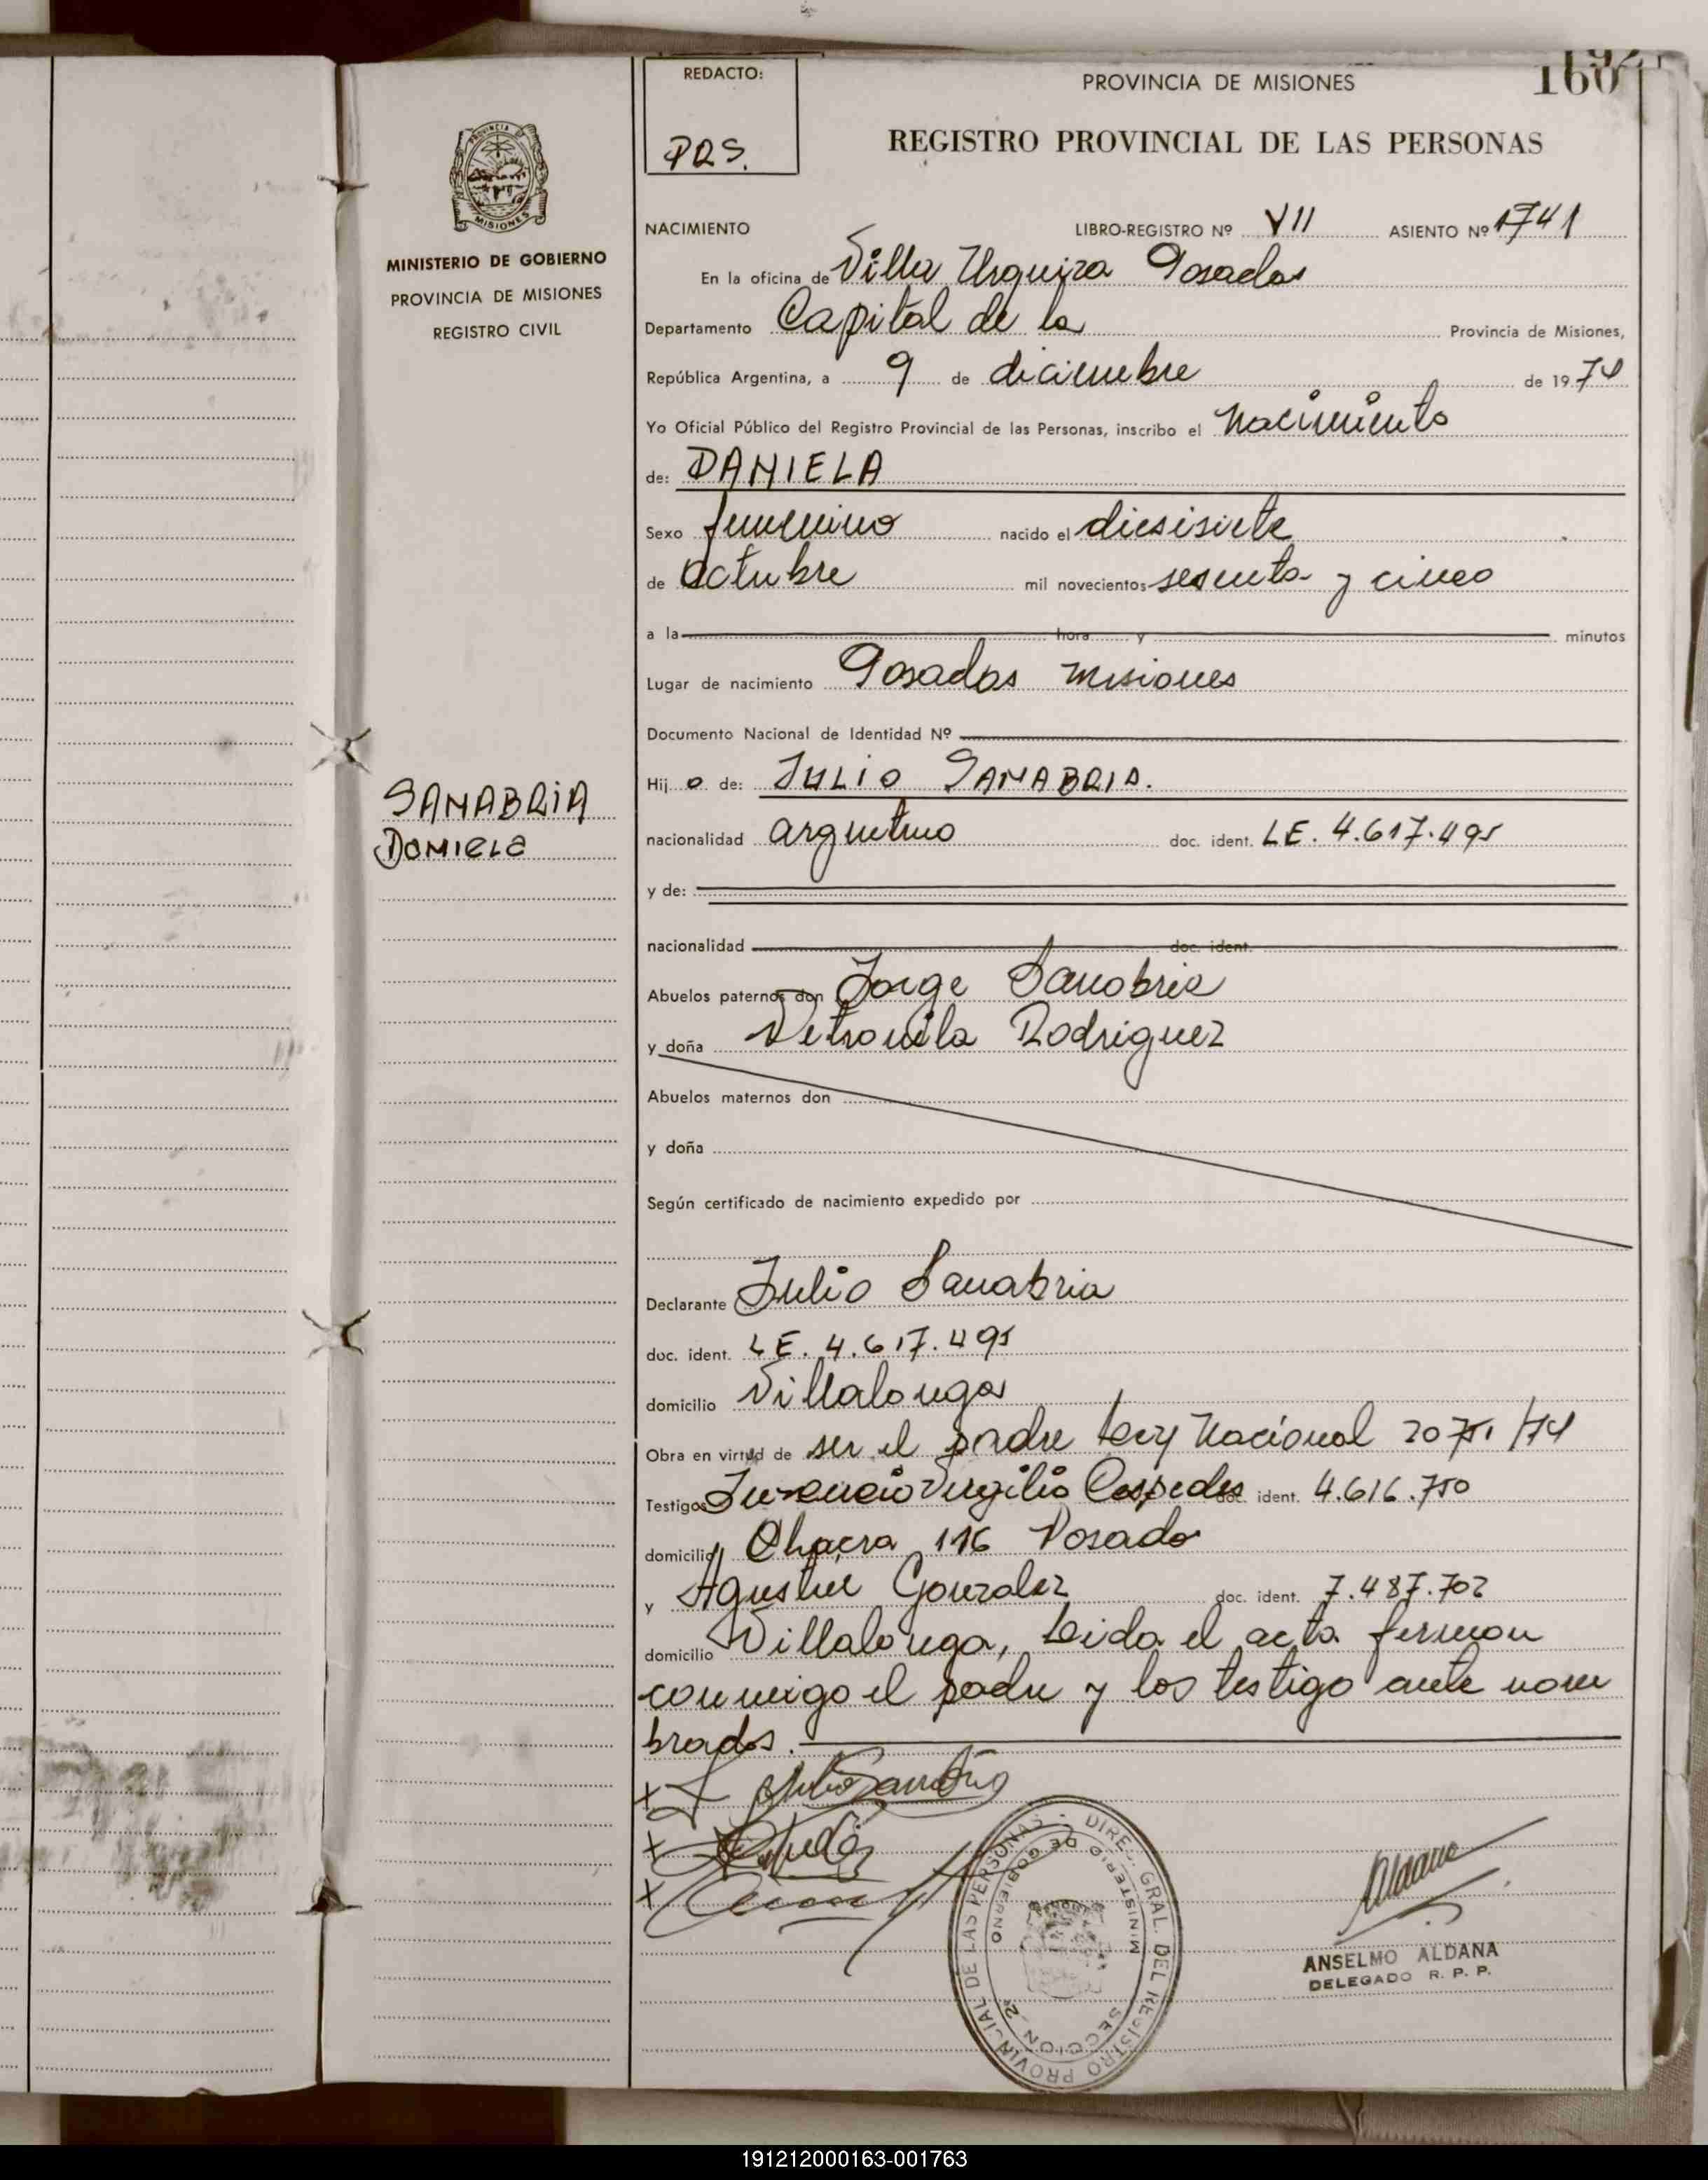 REDACTO:
PRS.
PROVINCIA DE MISIONES
160
REGISTRO PROVINCIAL DE LAS PERSONAS
MISIONES
MINISTERIO DE GOBIERNO
PROVINCIA DE MISIONES
REGISTRO CIVIL
NACIMIENTO LIBRO-REGISTRO Nº VII ASIENTO Nº 1741
En la oficina de Villa Urquiza Posadas
Departamento Capital de la Provincia de Misiones,
República Argentina, a 9 de diciembre de 1974
Yo Oficial Público del Registro Provincial de las Personas, inscribo el Nacimiento
de: DANIELA
Sexo femenino nacido el diesisiete
de Octubre mil novecientos sesenta y cinco
a la hora y minutos
Lugar de nacimiento Posadas Misiones
Documento Nacional de Identidad Nº
SANABRIA
Daniela
Hijo de: JULIO SANABRIA.
nacionalidad argentino doc. ident. LE. 4.617.495
y de:
nacionalidad doc. ident.
Abuelos paternos don Jorge Sanabria
y doña Petronila Rodriguez
Abuelos maternos don
y doña
Según certificado de nacimiento expedido por
Declarante Julio Sanabria
doc. ident. LE. 4.617.495
domicilio Villalonga
Obra en virtud de ser el padre Ley Nacional 20751/74
Testigos Virgilio Cespedes doc. ident. 4.616.750
domicilio Chacra 116 Posada
y Agustin Gonzalez doc. ident. 7.487.702
domicilio Villalonga, Leida el acta firman
conmigo el padre y los testigo ante nom
brados.
x
x
x
DIREC. GRAL. DEL REGISTRO PROVINCIAL DE LAS PERSONAS
MINISTERIO DE GOBIERNO
SECCION 2ª
Aldana
ANSELMO ALDANA
DELEGADO R. P. P.
191212000163-001763